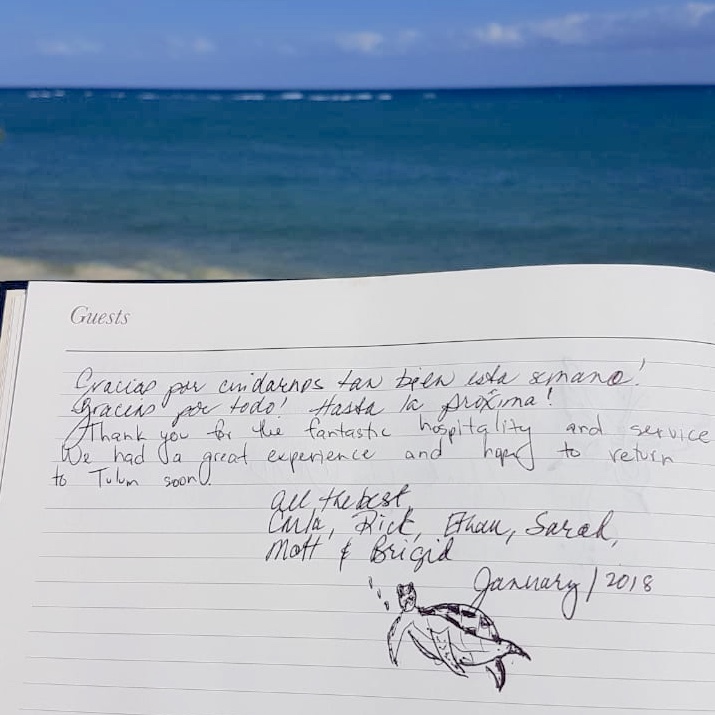 Guests
Gracias por cuidarnos tan bien esta semana!
Gracias por todo! Hasta la próxima!
Thank you for the fantastic hospitality and service
We had a great experience and hope to return
to Tulum soon.
All the best,
Carla, Rick, Ethan, Sarah,
Matt & Brigid
January/2018